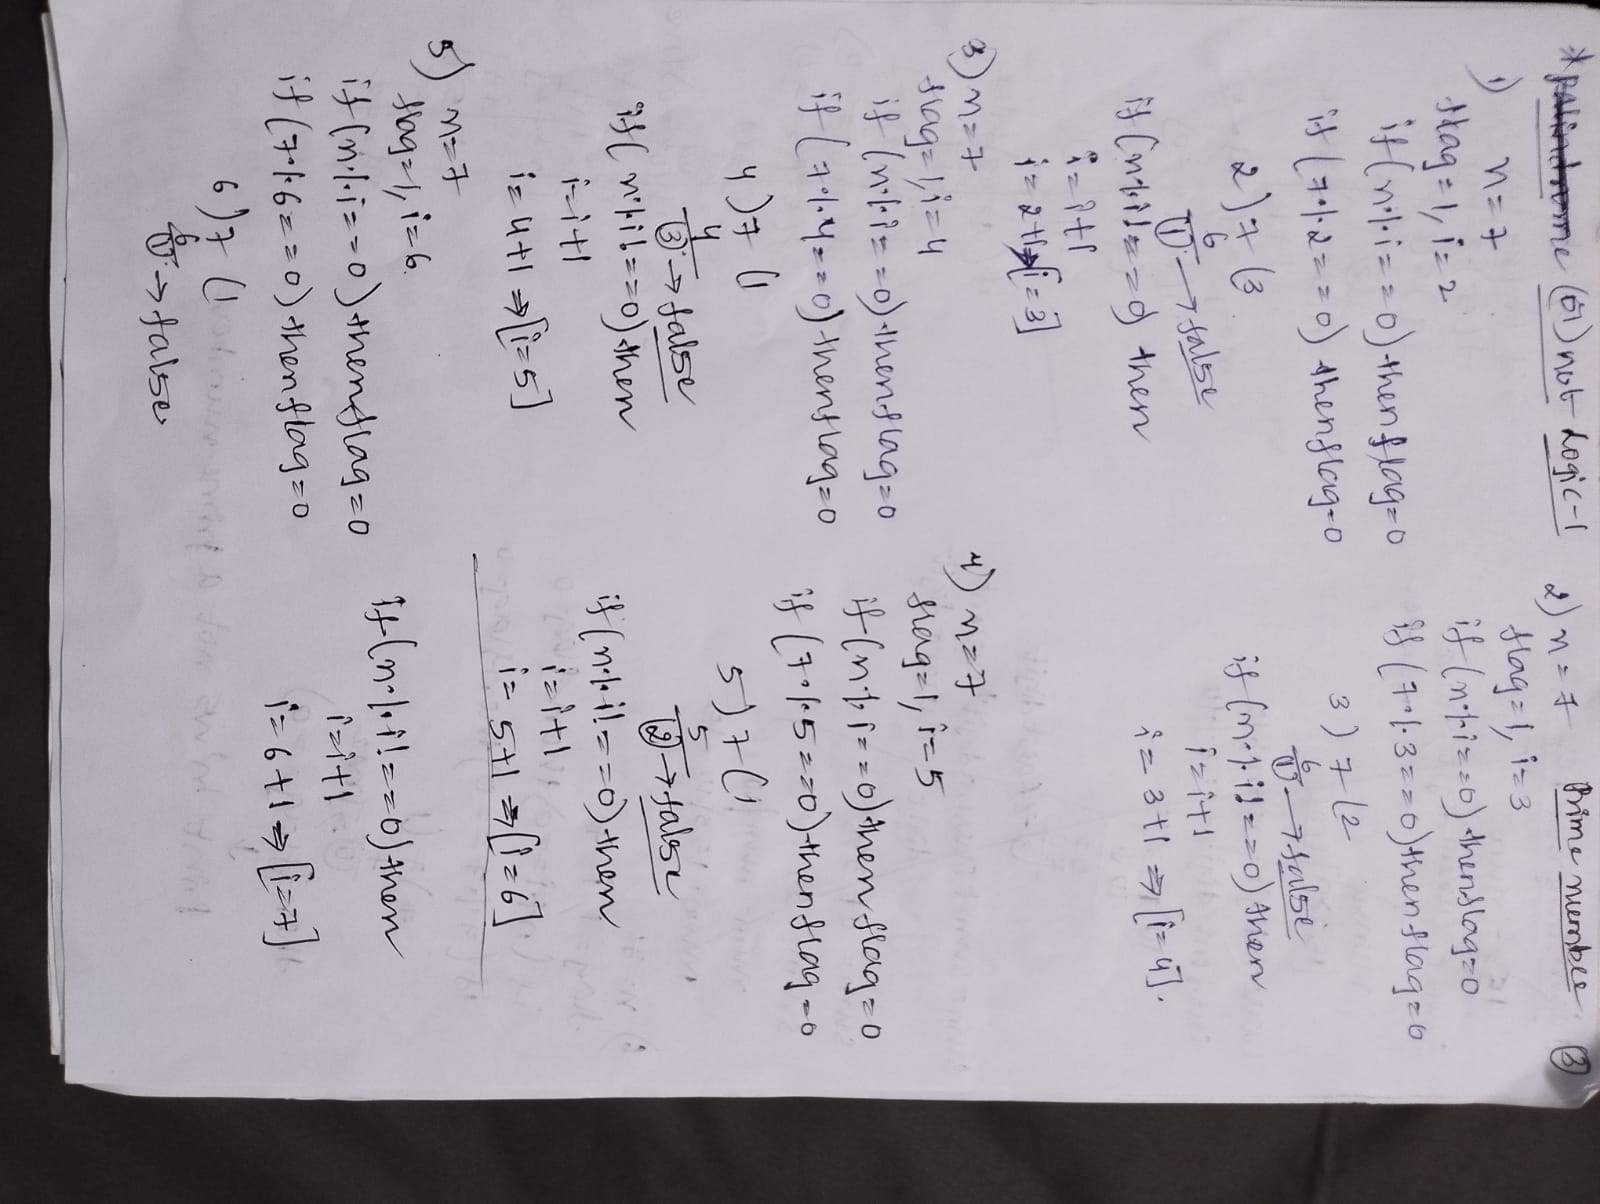 *palindrome (or) not Logic-1
Prime number
3
1) n=7
flag=1, i=2
if(n%i==0) then flag=0
if(7%2==0) then flag=0
2)7(3
6
1 → false
if(n%i!==0) then
i=i+1
i=2+1⇒[i=3]
2) n=7
flag=1, i=3
if(n%i==0) then flag=0
if(7%3==0) then flag=0
3)7(2
6
1 → false
if(n%i!==0) then
i=i+1
i=3+1 ⇒ [i=4].
3) n=7
flag=1, i=4
if(n%i==0) then flag=0
if(7%4==0) then flag=0
4)7(1
4
3 → false
if(n%i!==0) then
i=i+1
i=4+1 ⇒ [i=5]
4) n=7
flag=1, i=5
if(n%i==0) then flag=0
if(7%5==0) then flag=0
5)7(1
5
2 → false
if(n%i!==0) then
i=i+1
i=5+1 ⇒ [i=6]
5) n=7
flag=1, i=6.
if(n%i==0) then flag=0
if(7%6==0) then flag=0
6)7(1
6
1 → false
if(n%i!==0) then
i=i+1
i=6+1 ⇒ [i=7]